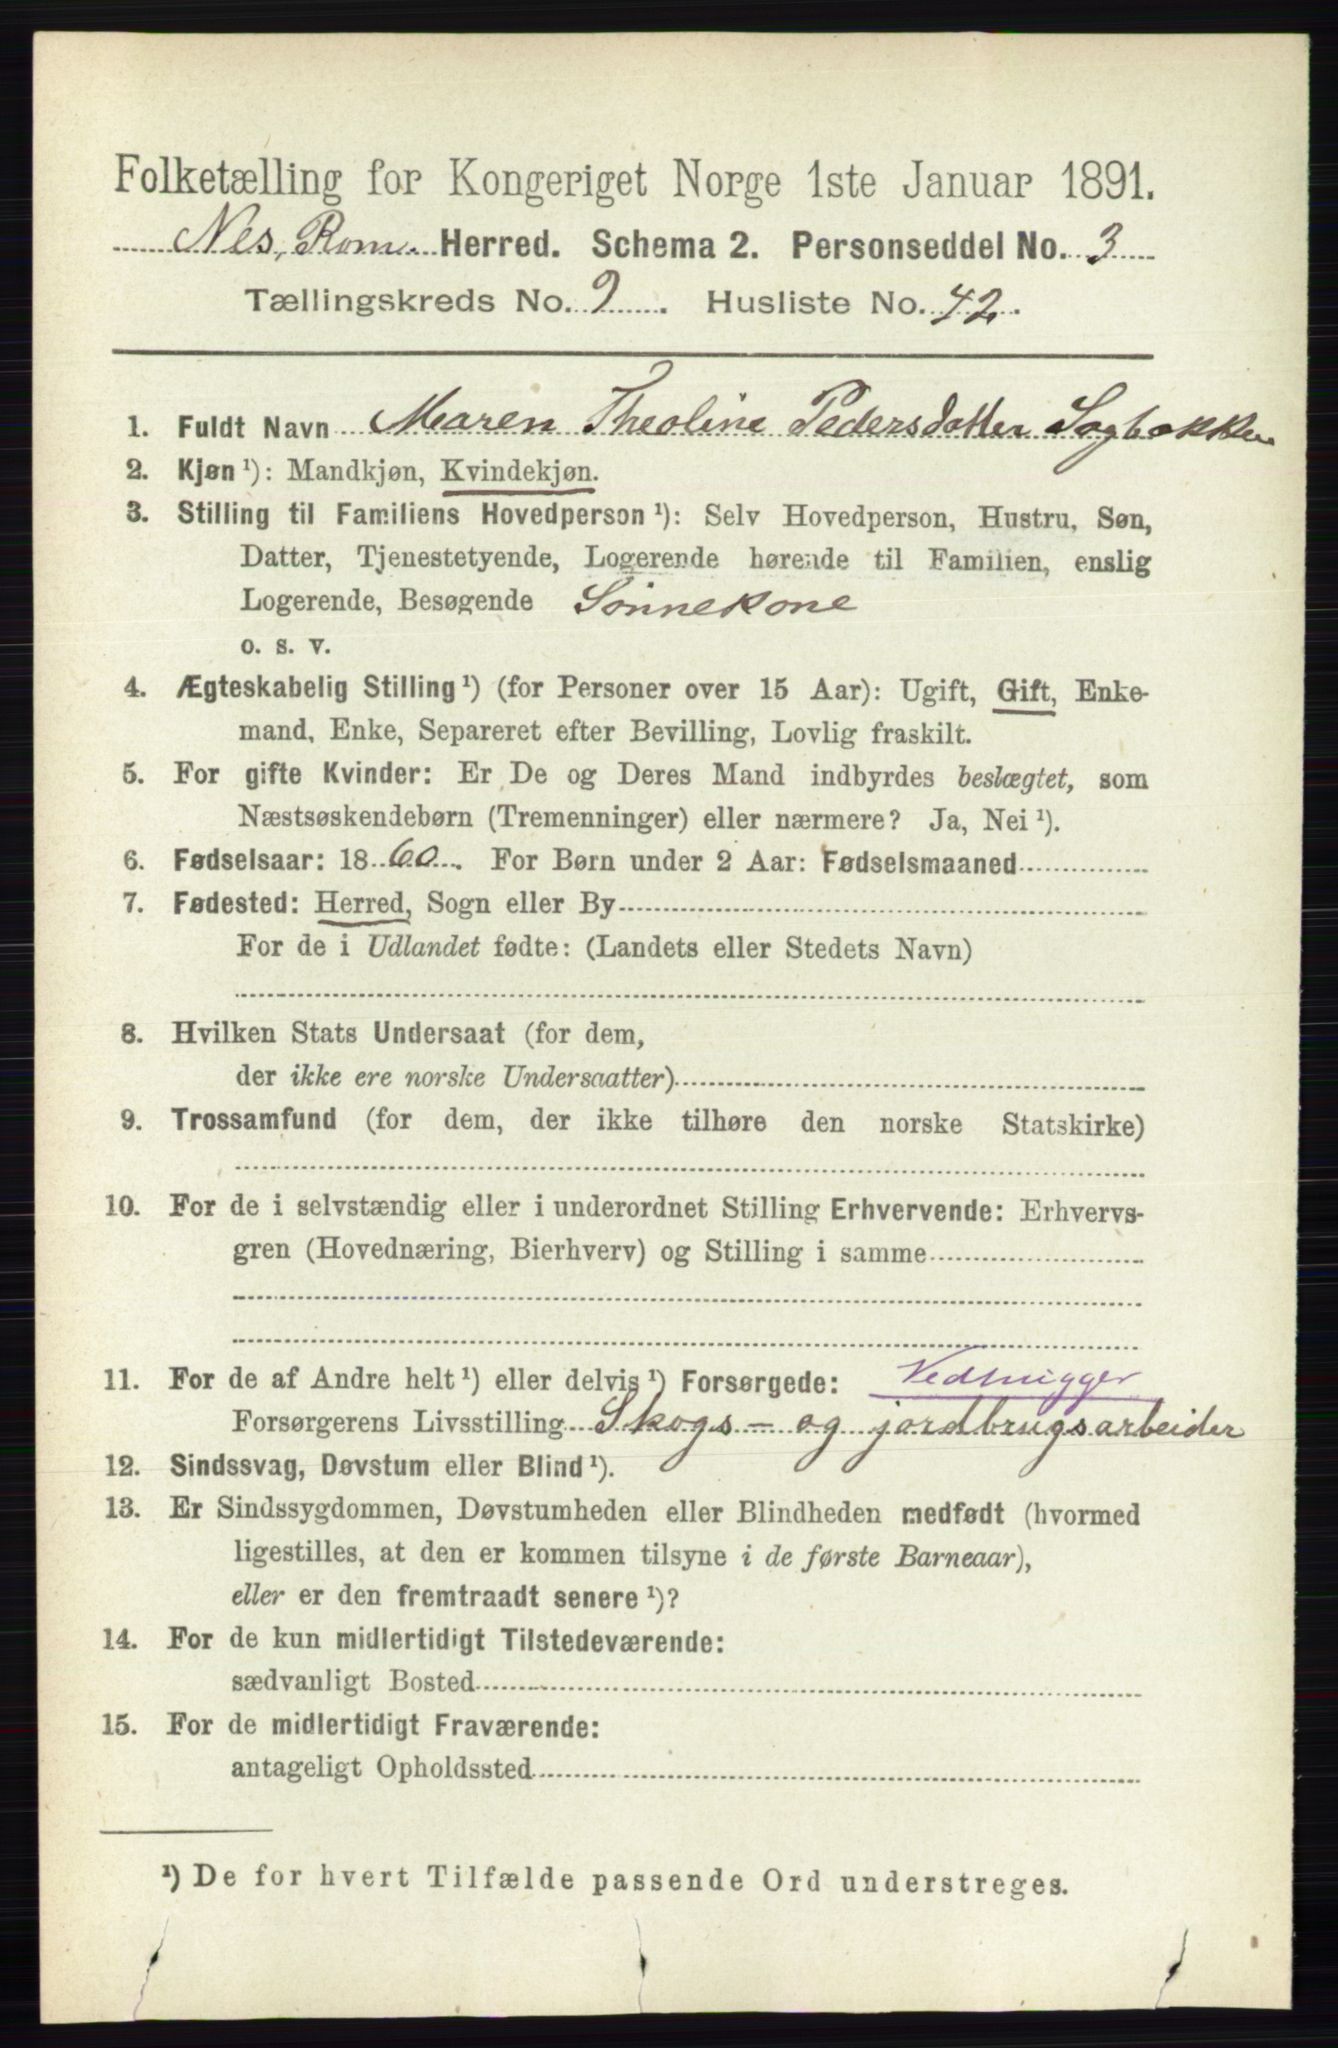 Folketælling for Kongeriget Norge 1ste Januar 1891.
Nes, Rom. Herred. Schema 2. Personseddel No. 3
Tællingskreds No. 9. Husliste No. 42.
1. Fuldt Navn Maren Theoline Pedersdatter Sogbakken
2. Kjøn ¹): Mandkjøn, Kvindekjøn.
3. Stilling til Familiens Hovedperson ¹): Selv Hovedperson, Hustru, Søn,
Datter, Tjenestetyende, Logerende hørende til Familien, enslig
Logerende, Besøgende Sønnekone
o. s. v.
4. Ægteskabelig Stilling ¹) (for Personer over 15 Aar): Ugift, Gift, Enke-
mand, Enke, Separeret efter Bevilling, Lovlig fraskilt.
5. For gifte Kvinder: Er De og Deres Mand indbyrdes beslægtet, som
Næstsøskendebørn (Tremenninger) eller nærmere? Ja, Nei ¹).
6. Fødselsaar: 1860. For Børn under 2 Aar: Fødselsmaaned
7. Fødested: Herred, Sogn eller By
For de i Udlandet fødte: (Landets eller Stedets Navn)
8. Hvilken Stats Undersaat (for dem,
der ikke ere norske Undersaatter)
9. Trossamfund (for dem, der ikke tilhøre den norske Statskirke)
10. For de i selvstændig eller i underordnet Stilling Erhvervende: Erhvervs-
gren (Hovednæring, Bierhverv) og Stilling i samme
11. For de af Andre helt ¹) eller delvis ¹) Forsørgede: Vedhugger
Forsørgerens Livsstilling Skogs- og jordbrugsarbeider
12. Sindssvag, Døvstum eller Blind ¹).
13. Er Sindssygdommen, Døvstumheden eller Blindheden medfødt (hvormed
ligestilles, at den er kommen tilsyne i de første Barneaar),
eller er den fremtraadt senere ¹)?
14. For de kun midlertidigt Tilstedeværende:
sædvanligt Bosted
15. For de midlertidigt Fraværende:
antageligt Opholdssted
¹) De for hvert Tilfælde passende Ord understreges.